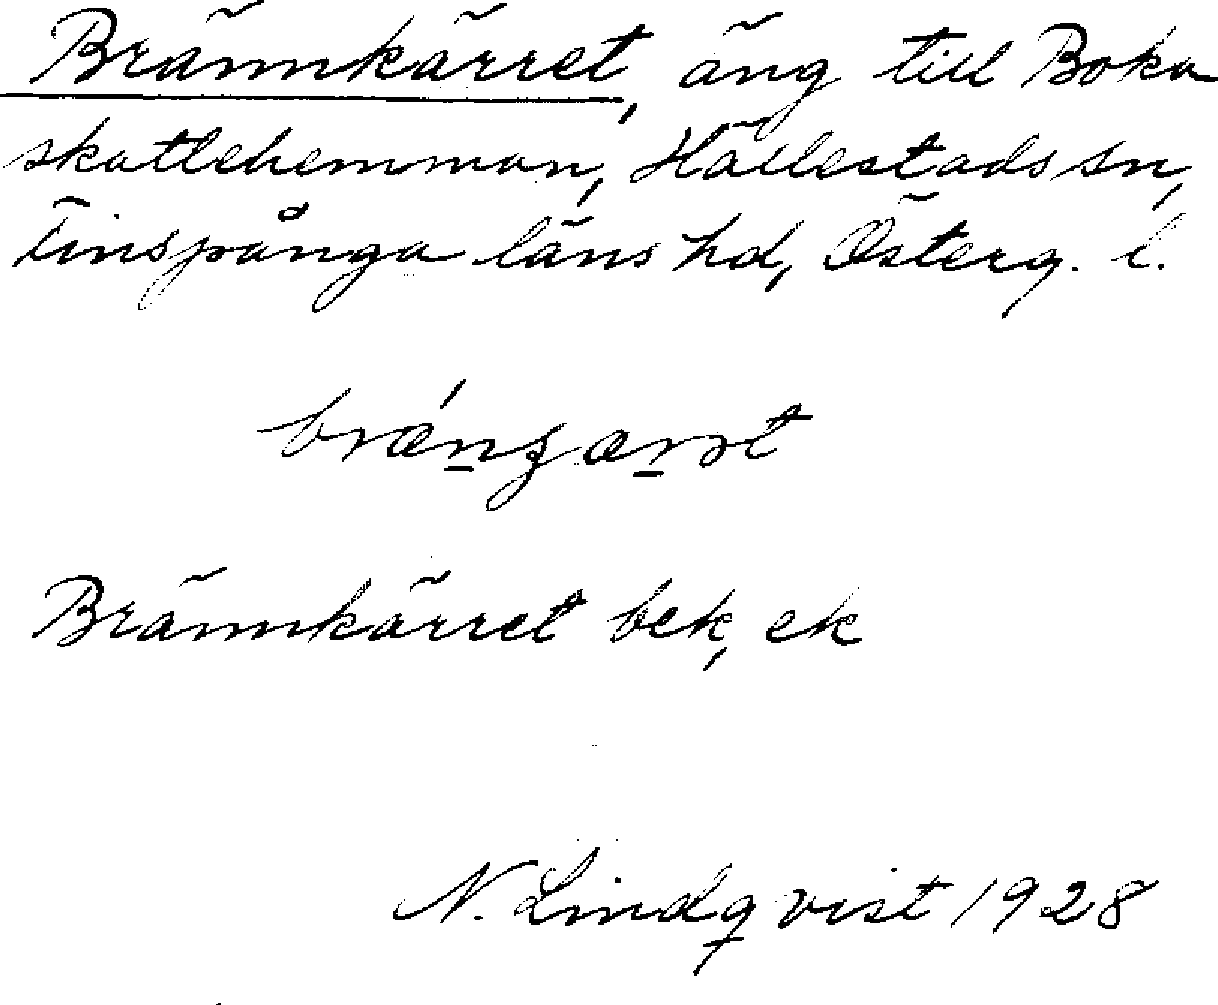 Brännkärret, äng till Boka
skattehemman, Hällestads sn,
Finspånga läns hd, Österg. l.
Brännkärret bek, ek
N. Lindqvist 1928